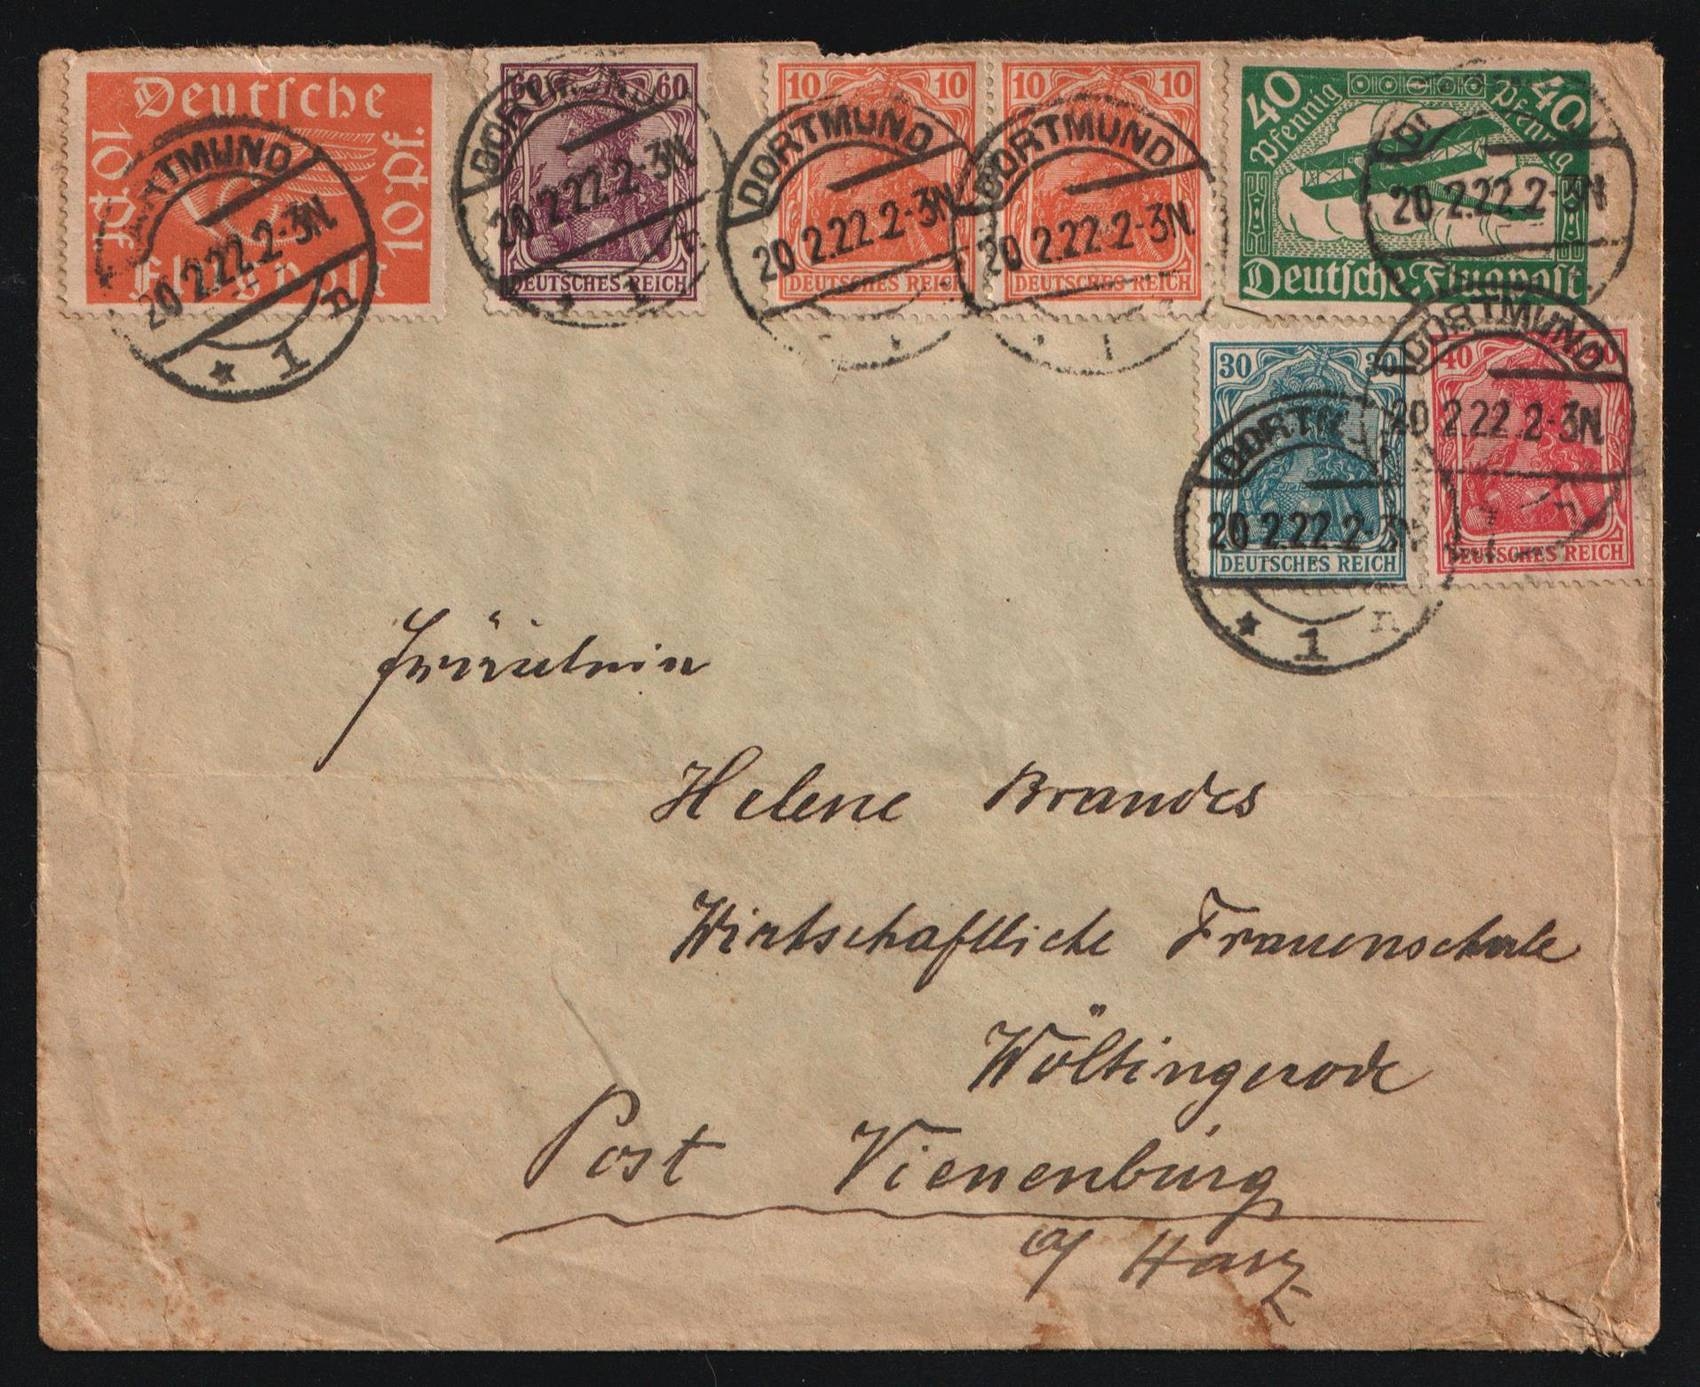 Deutsche
10 Pf. 10 Pf.
Flugpost
60 60
DEUTSCHES REICH
10 10
DEUTSCHES REICH
10 10
DEUTSCHES REICH
40 Pfennig Pfennig 40
Deutsche Flugpost
30 30
DEUTSCHES REICH
40 40
DEUTSCHES REICH
DORTMUND
20 2.22. 2-3N.
* 1 n
DORTMUND
20 2.22. 2-3N.
* 1
DORTMUND
20 2.22. 2-3N.
DORTMUND
20 2.22. 2-3N.
* 1
20 2.22. 2-3N.
DORTMUND
20 2.22. 2-3N.
DORTMUND
20 2.22. 2-3N.
* 1 n
Fräulein
Helene Brandes
Wirtschaftliche Frauenschule
Wöltingerode
Post Vienenburg
a/ Harz